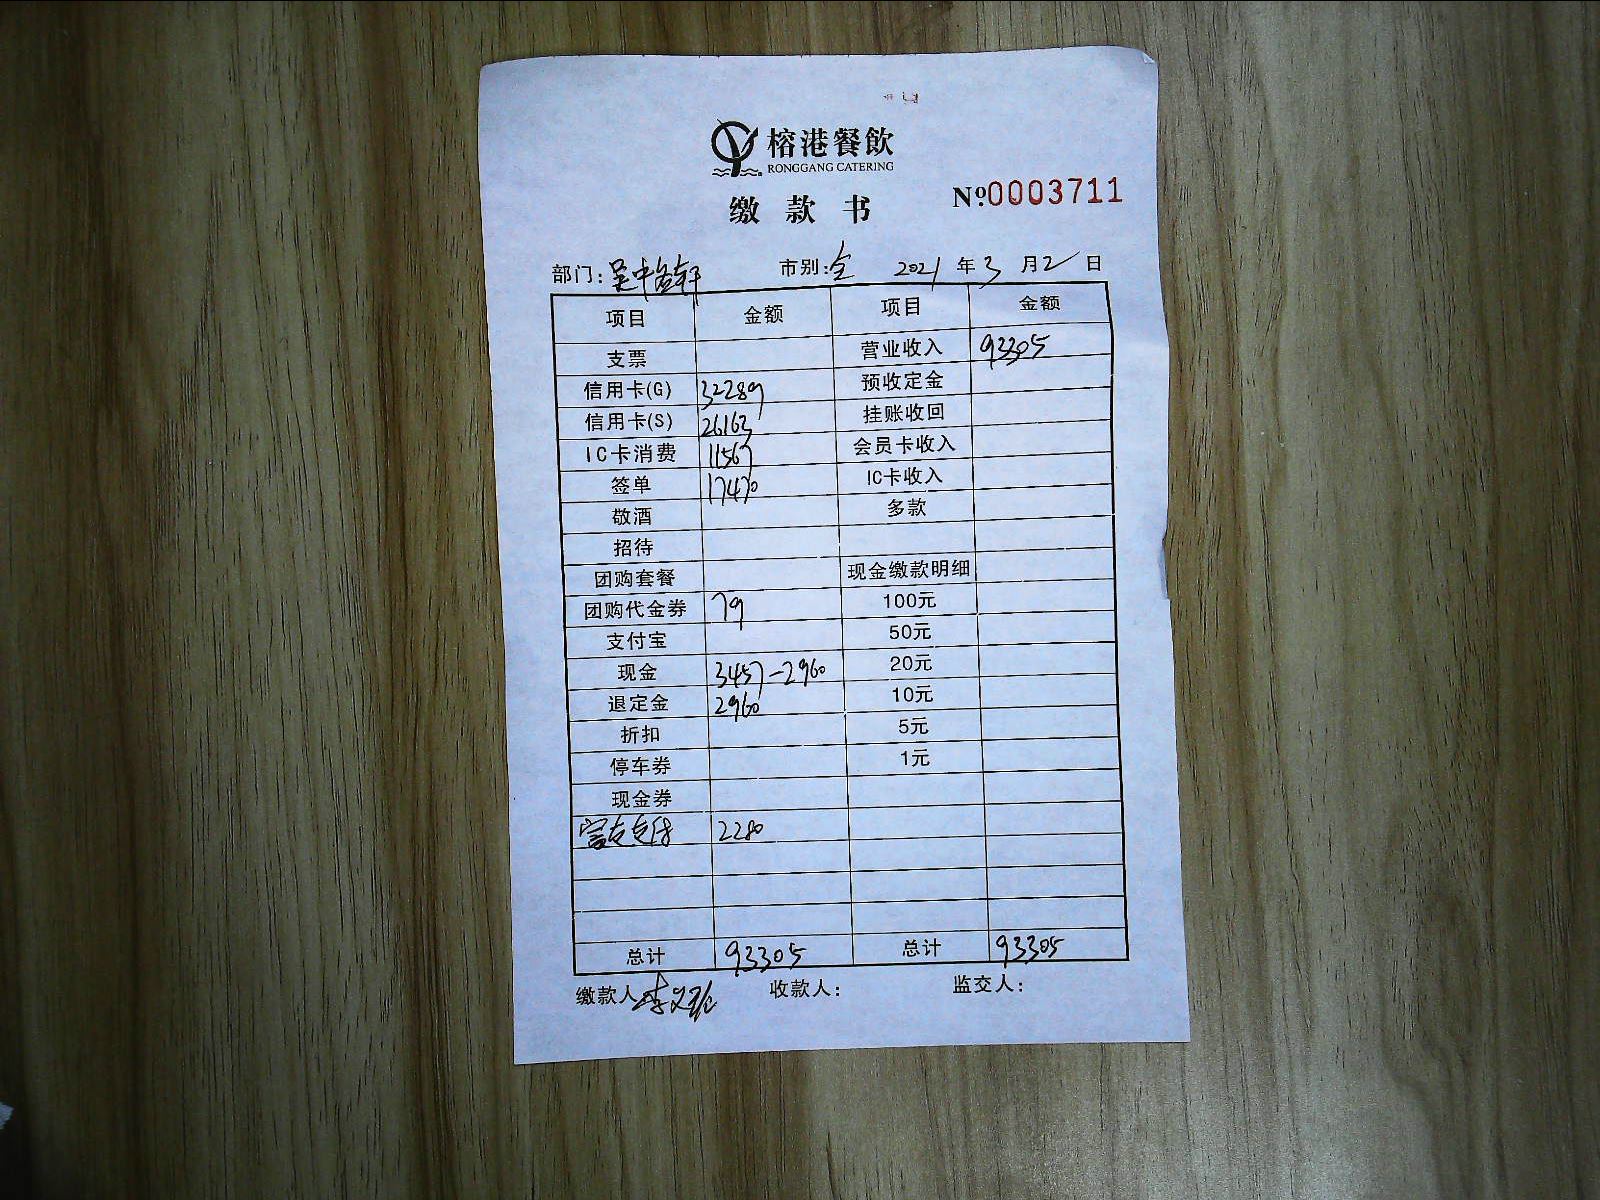 榕港餐飲
RONGGANG CATERING
缴款书
Nº:0003711
部门: 吴中 市别: 全 2021 年 3 月 2 日
项目 金额 项目 金额
支票 营业收入 93305
信用卡(G) 32289 预收定金
信用卡(S) 26163 挂账收回
IC卡消费 11567 会员卡收入
签单 17470 IC卡收入
敬酒 多款
招待
团购套餐 现金缴款明细
团购代金券 79 100元
支付宝 50元
现金 3457-2960 20元
退定金 2960 10元
折扣 5元
停车券 1元
现金券
富友支付 2280
总计 93305 总计 93305
缴款人 李文 收款人: 监交人: